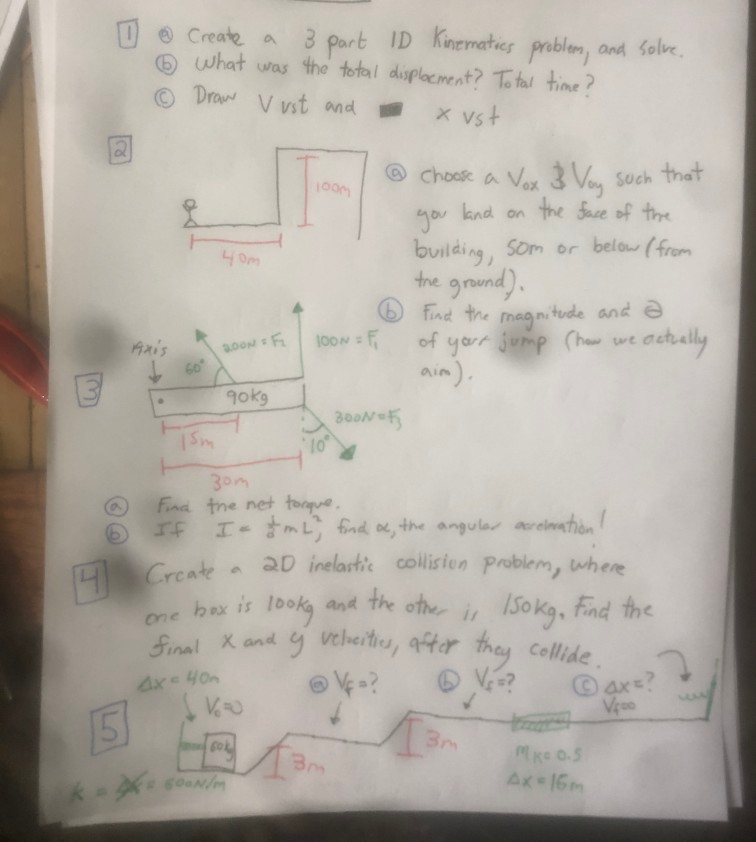 1 a Create a 3 part 1D Kinematics problem, and solve.
b What was the total displacment? Total time?
c Draw V vst and x vst
2
100m
40m
a Choose a Vox & Voy such that
you land on the face of the
building, 50m or below (from
the ground).
b Find the magnitude and θ
of your jump (how we actually
aim).
3
Axis
60°
200N = F₂
100N = F₁
90kg
300N = F₃
10°
15m
30m
a Find the net torque.
b If I = mL², find α, the angular acceleration!
4 Create a 2D inelastic collision problem, where
one box is 100kg and the other is 150kg. Find the
final x and y velocities, after they collide.
5
Δx = 40m
V₀=0
a Vf=?
b Vf=?
c Δx=?
Vf=0
3m
3m
k = = 800N/m
Mk = 0.5
Δx = 16m